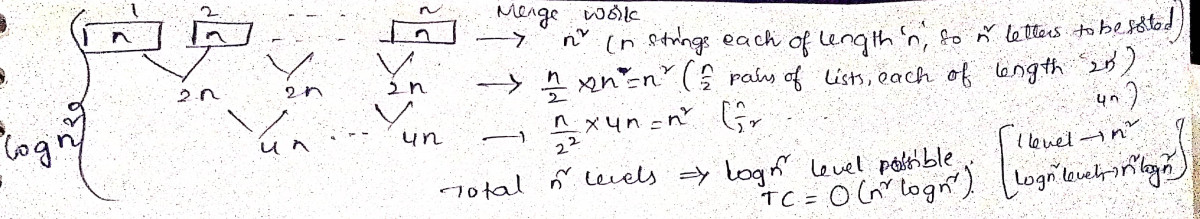 1 2 - - - n Merge work
n n - - - - n → n² (n strings each of length 'n', so n² letters to be sorted)
2n 2n 2n → n/2 × 2n = n² (n/2 pairs of lists, each of length 2n)
log n² 4n - - - 4n → n/2² × 4n = n² (n/2² 4n)
Total n² levels ⇒ log n² level possible. [1 level → n²
TC = O(n² log n²). log n² levels → n² log n²]